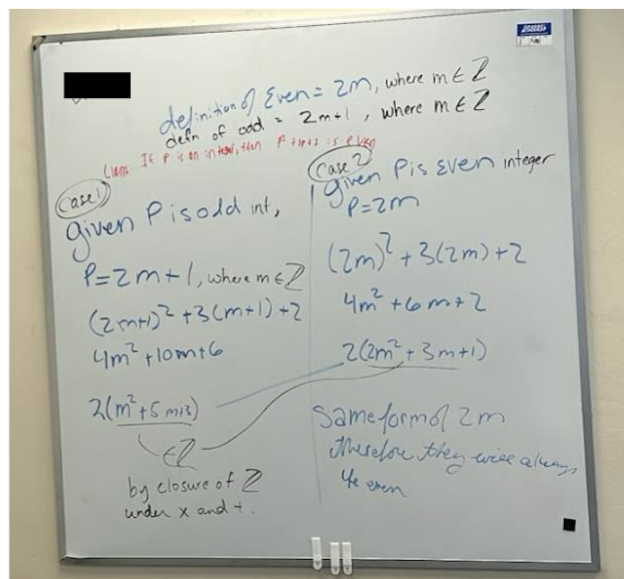 definition of Even = 2m, where m ∈ ℤ
defn of odd = 2m+1, where m ∈ ℤ
Claim If P is an integer, then P² +3p+2 is even
Case 1
given P is odd int,
P=2m+1, where m∈ℤ
(2m+1)² +3(m+1)+2
4m²+10m+6
2(m²+5m+3)
∈ℤ
by closure of ℤ
under x and +.
Case 2
given P is Even integer
P=2m
(2m)² +3(2m)+2
4m²+6m+2
2(2m²+3m+1)
Same form of 2m
therefore they will always
be even